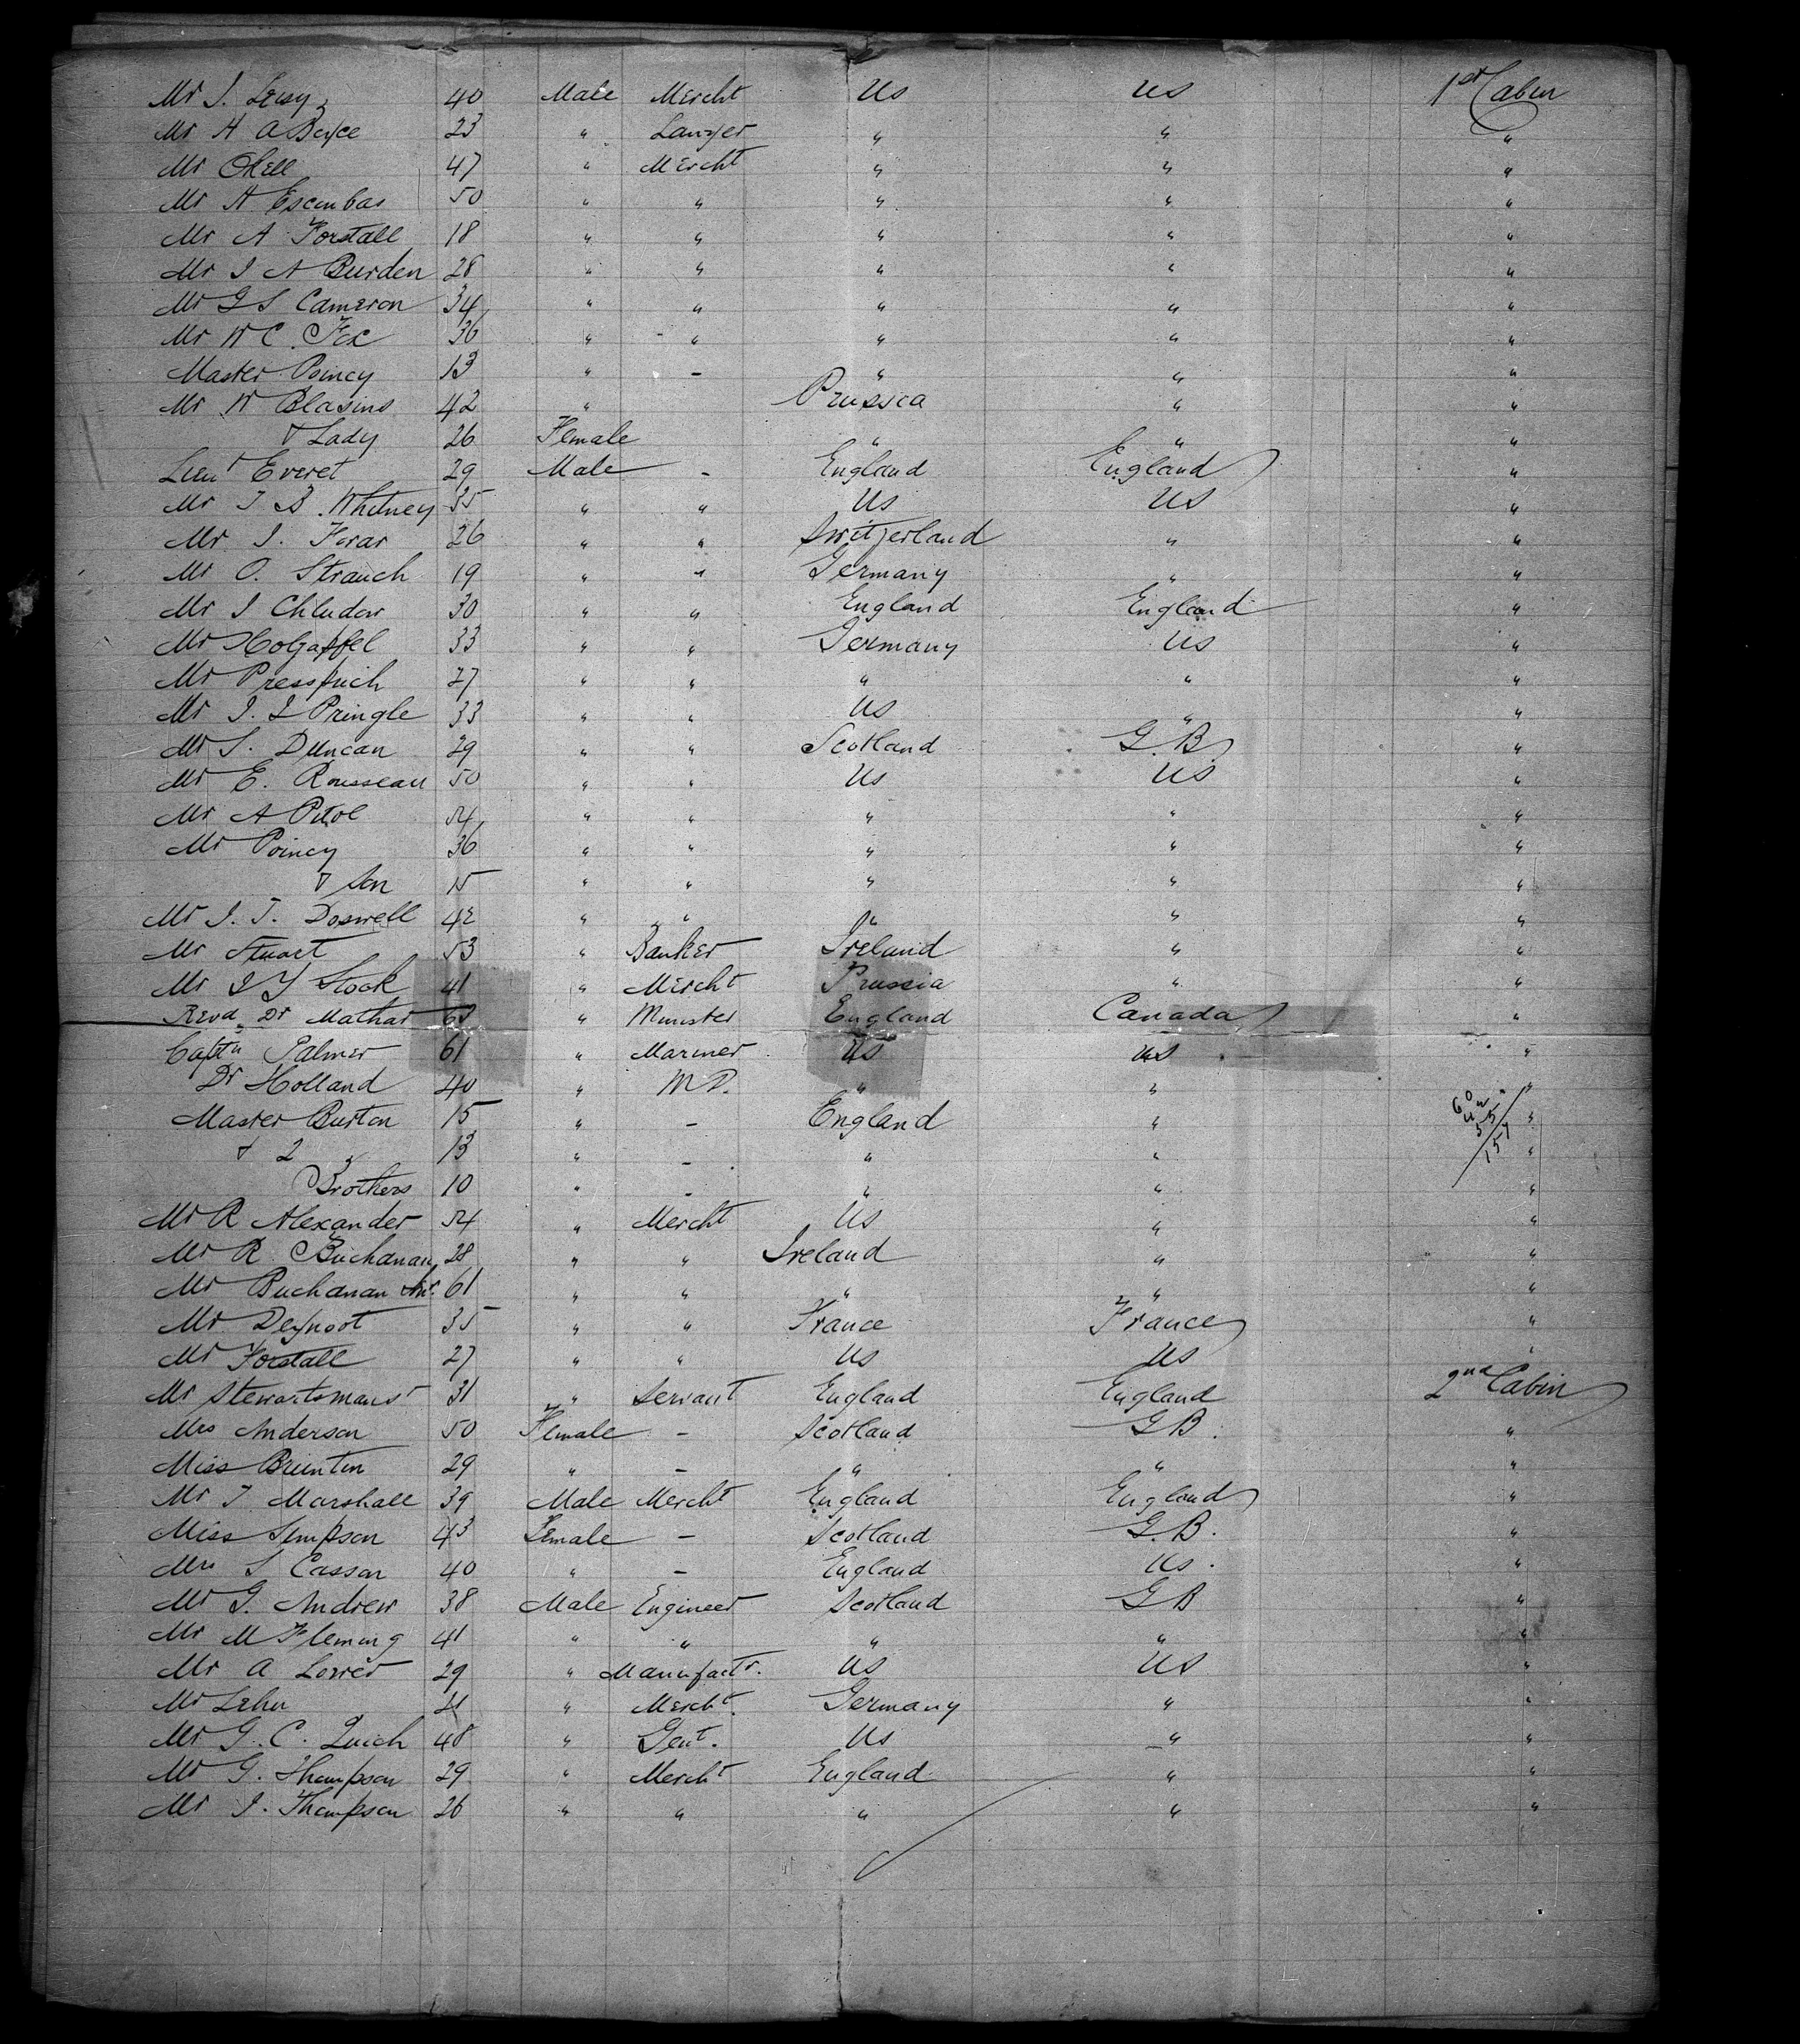 Mr J. Levy 40 Male Mercht Us Us 1st Cabin
Mr H A Boyce 23 " Lawyer " " "
Mr Okell 47 " Mercht " " "
Mr A Escubas 50 " " " " "
Mr A Forstall 18 " " " " "
Mr I A Burden 28 " " " " "
Mr G S Cameron 34 " " " " "
Mr W C. Fox 36 " " " " "
Master Poincy 13 " - " " "
Mr W Blasins 42 " Prussia " "
& Lady 26 Female " " "
Lieut Everet 29 Male - England England "
Mr J B. Whitney 35 " " Us Us "
Mr J. Forar 26 " " Switzerland " "
Mr O. Strauch 19 " " Germany " "
Mr J Chludow 30 " " England England "
Mr Holzapfel 33 " " Germany Us "
Mr Pressprich 27 " " " " "
Mr J. J Pringle 33 " " Us " "
Mr S. Duncan 29 " " Scotland G.B. "
Mr E. Rousseau 50 " " Us Us "
Mr A Pitol 54 " " " " "
Mr Poincy 36 " " " " "
& Son 15 " " " " "
Mr J. T. Doswell 42 " " " " "
Mr Stuart 53 " Banker Ireland " "
Mr J Y Stock 41 " Mercht Prussia " "
Revd Dr Mathar 63 " Minister England Canada "
Captn Palmer 61 " Mariner Us Us "
Dr Holland 40 " M D. " " "
Master Burton 15 " - England " "
& 2 13 " - " " "
Brothers 10 " - " " "
Mr R Alexander 54 " Mercht Us " "
Mr R Buchanan 28 " " Ireland " "
Mr Buchanan Snr. 61 " " " " "
Mr Deynoot 35 " " France France "
Mr Forstall 27 " " Us Us "
Mr Stewartsmanst 31 " Servant England England 2nd Cabin
Mrs Anderson 50 Female - Scotland G B. "
Miss Brunton 29 " - " " "
Mr J Marshall 39 Male Mercht England England "
Miss Simpson 43 Female - Scotland G.B. "
Mrs S Casson 40 " - England Us. "
Mr G. Andrew 38 Male Engineer Scotland G B "
Mr M Fleming 41 " " " " "
Mr A Lower 29 " Manufactr. Us Us "
Mr Lehn 21 " Mercht. Germany " "
Mr G. C. Quich 48 " Gent. Us " "
Mr G. Thompson 29 " Mercht England " "
Mr J. Thompson 26 " " " " "